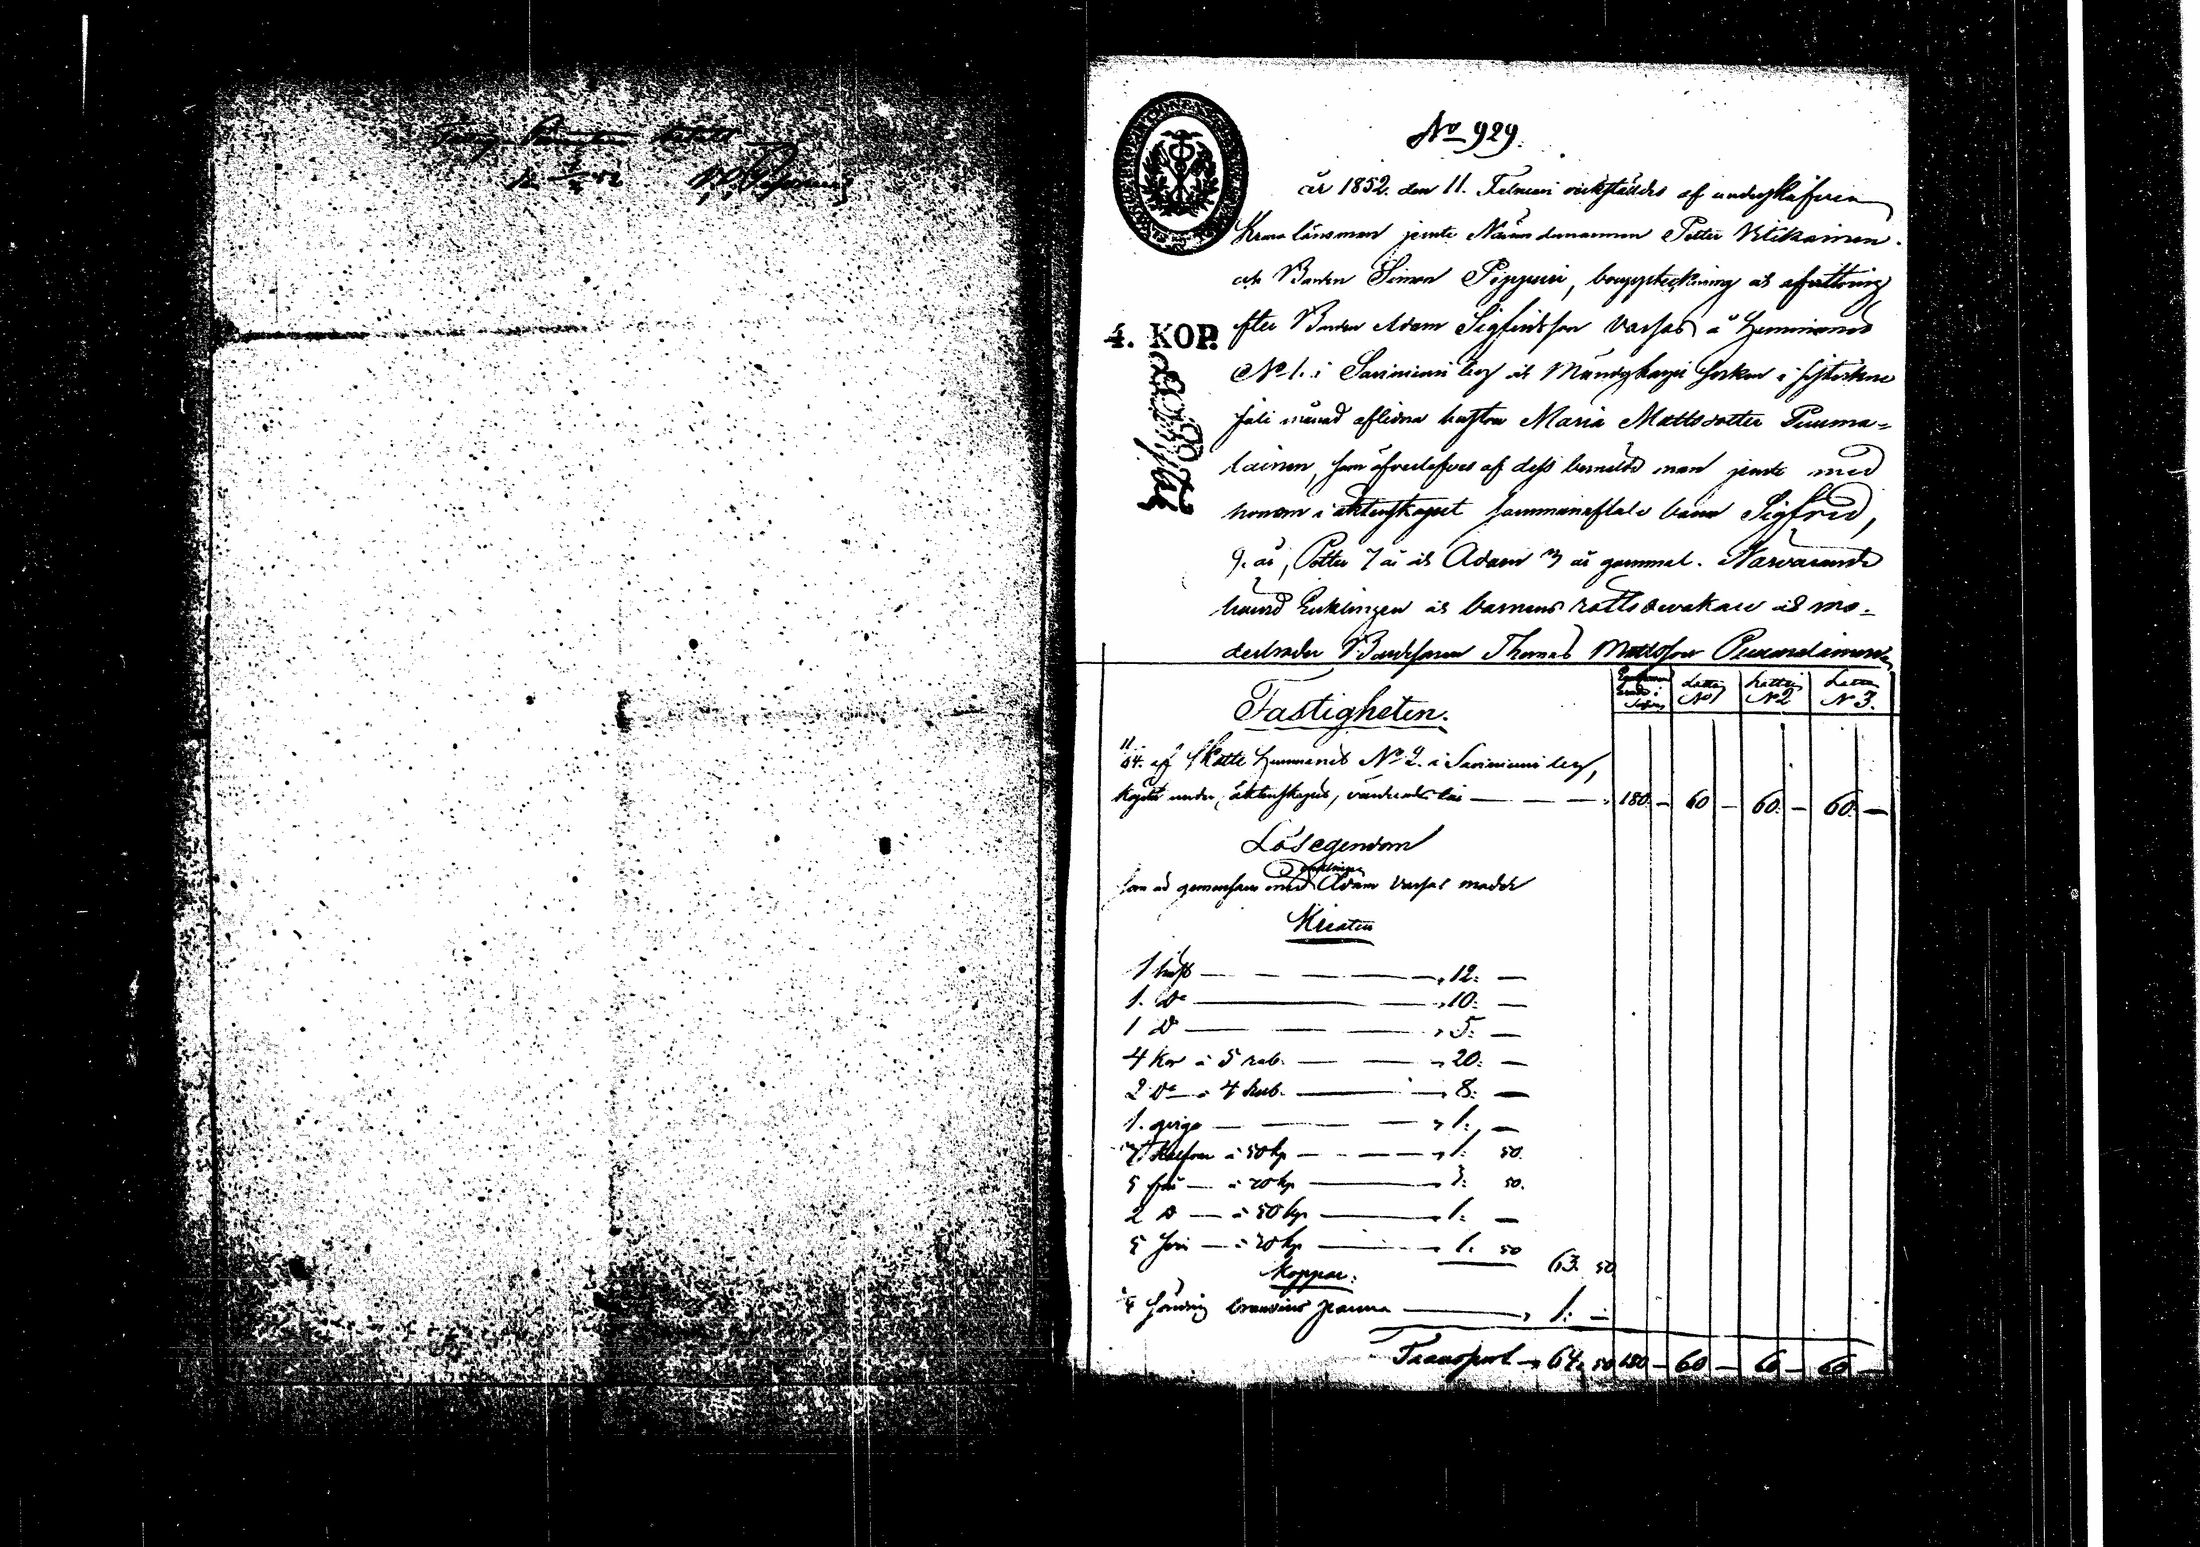 No 929.
år 1852 den 11. Februari verkställdes af undertecknade
Krono länsman jemte Nämndemannen Petter Utikainen
och Bonden Simon Pippuri, bouppteckning och afvittring
efter Bonden Adam Sigfridsson Varfas å Hemmanet
No 1. i Saviniemi by och Mändyharju socken i sistledne
Juli månad aflidna hustru Maria Mattsdotter Puuma=
lainen, som öfverlefves af dess bemälde man jemte med
honom i äktenskapet sammanaflade barn Sigfred,
9. år, Petter 7 år och Adam 3 år gammal. Närvarande
hvard Enklingen och barnens rätts bevakare och mo=
derbroder Bondesonen Thomas Mattsson Puumalainen
4. KOP.
Fastigheten.
Lotten No 1
Lotten No 2
Lotten No 3.
11/64. af Skatte Hemmanet No 2. i Saviniemi by,
köpte under äktenskapet, värderades till — — — 180. — 60 — 60. — 60. —
Lösegendom
enklingen
som är gemensam med Adam Varfas moder
Kreatur
1 häst — — — — 12. —
1. do — — 10. —
1 do — — — 5. —
4 Kor à 5 rub. — — 20. —
2 do à 4 Rub. — — 8. —
1. qviga — — — 1. —
3 Kalfvar à 50 kp — — — 1. 50.
5 får — à 70 kp — 3. 50.
2 do — à 50 kp — 1. —
5 svin — à 30 kp — 1. 50 63. 50
Koppar.
brännvins panna — 1. —
Transport — 64. 50 180 — 60 — 60 — 60 —